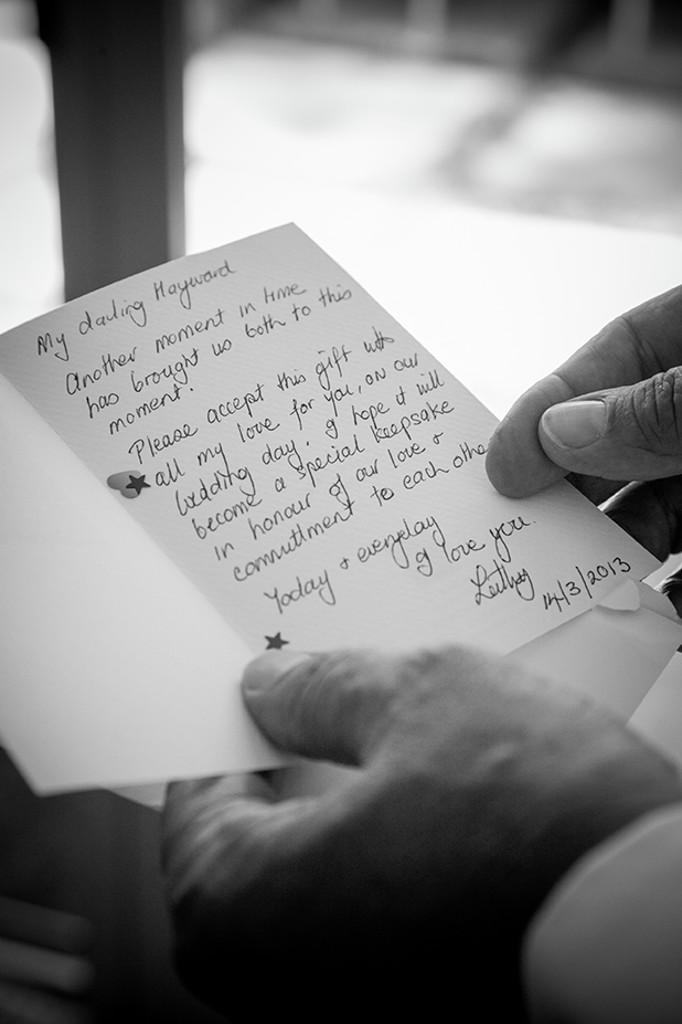 My darling Hayward
Another moment in time
has brought us both to this
moment.
Please accept this gift with
all my love for you, on our
Wedding day. I hope it will
become a special keepsake
in honour of our love +
commitment to each othe
Today + everyday
I love you.
14/3/2013